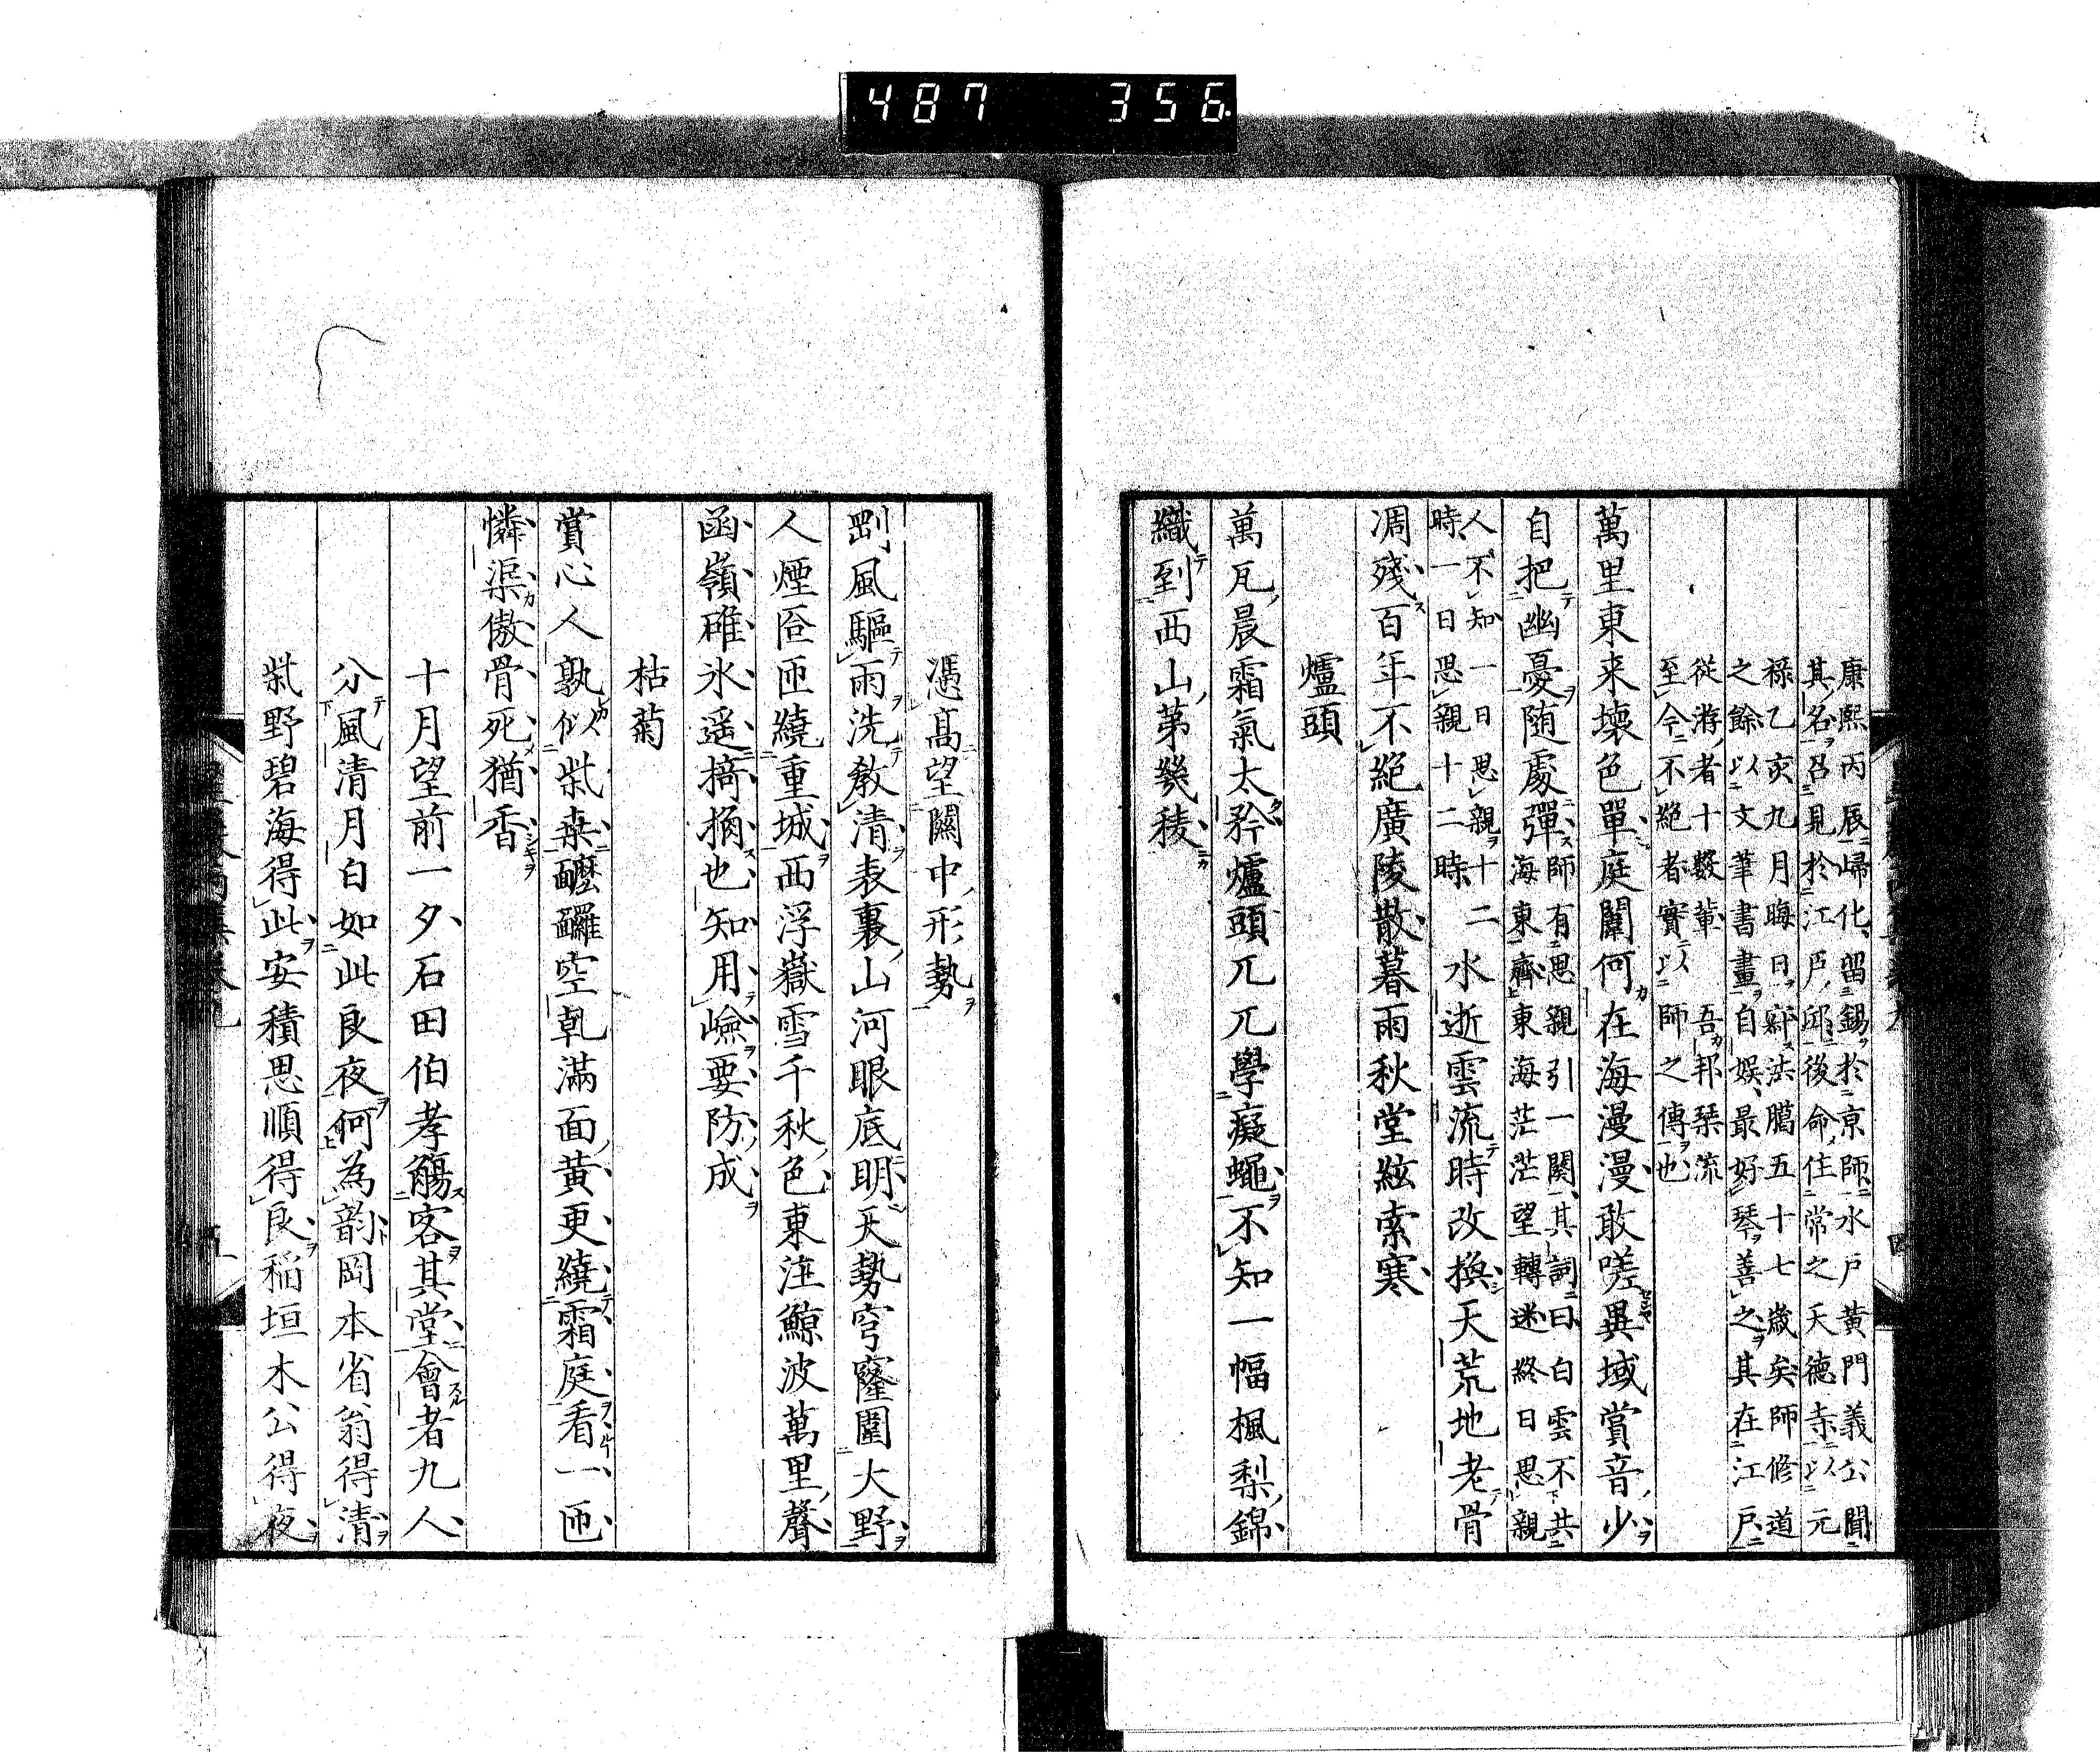 487 356
康熙丙辰歸化、留錫於京師、水戶黃門義公聞
其名召見於江戶、邱後命住常之天德寺以元
祿乙亥九月晦日寂法臈五十七歲矣師修道
之餘以文筆書畫自娛、最好琴善之其在江戶
從游者十數輩、吾邦琴流
至今不絕者實以師之傳也
萬里東来壞色單庭闈何在海漫漫敢嗟異域賞音少
自把幽憂随處彈師有思親引一闋、其詞曰、白雲不共
海東齊東海茫茫望轉迷終日思親
人不知一日思親十二
時一日思親十二時、水逝雲流時改換天荒地老骨
凋殘百年不絕廣陵散暮雨秋堂絃索寒
爐頭
萬瓦晨霜氣太矜爐頭兀兀學癡蠅不知一幅楓梨錦
織到西山第幾稜
憑高望關中形勢
剛風驅雨洗教清表裏山河眼底明天勢穹窿圍大野
人煙匼匝繞重城西浮嶽雪千秋色東注鯨波萬里聲
函嶺碓氷遥掎捔也知用嶮要防成
枯菊
賞心人孰似柴桑䤍䤘空乾滿面黃更繞霜庭看一匝
憐渠傲骨死猶香
十月望前一夕石田伯孝觴客其堂會者九人
分風清月白如此良夜何為韵岡本省翁得清
柴野碧海得此安積思順得良稲垣木公得夜